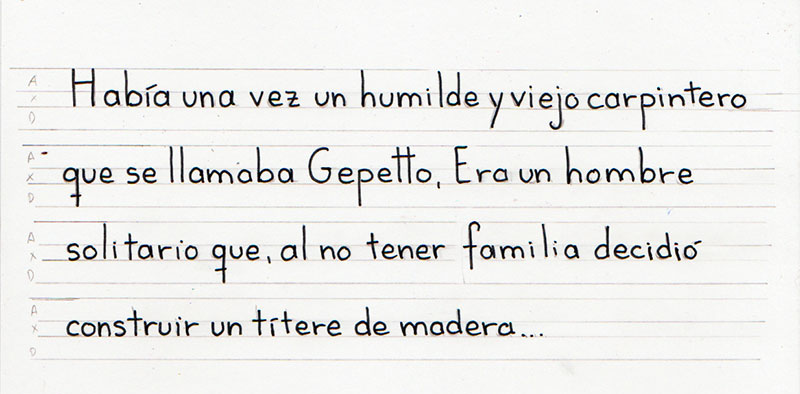 A
x
D
Había una vez un humilde y viejo carpintero
A
x
D
que se llamaba Gepetto, Era un hombre
A
x
D
solitario que, al no tener familia decidió
A
x
D
construir un títere de madera...